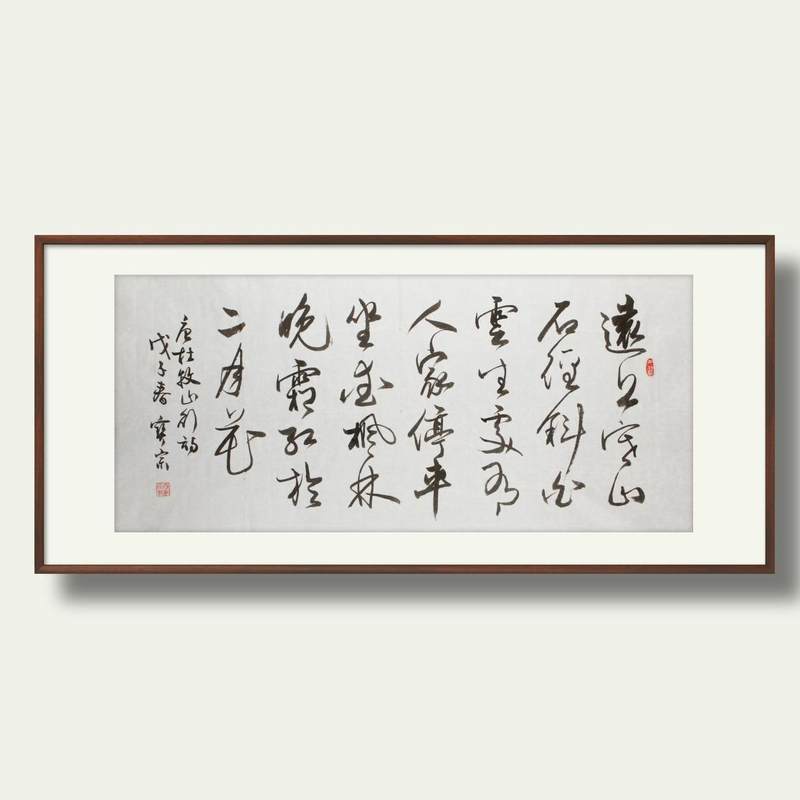 遠上寒山
石徑斜白
雲生處有
人家停車
坐愛楓林
晚霜紅於
二月花
唐杜牧山行詩
戊子春寶宗